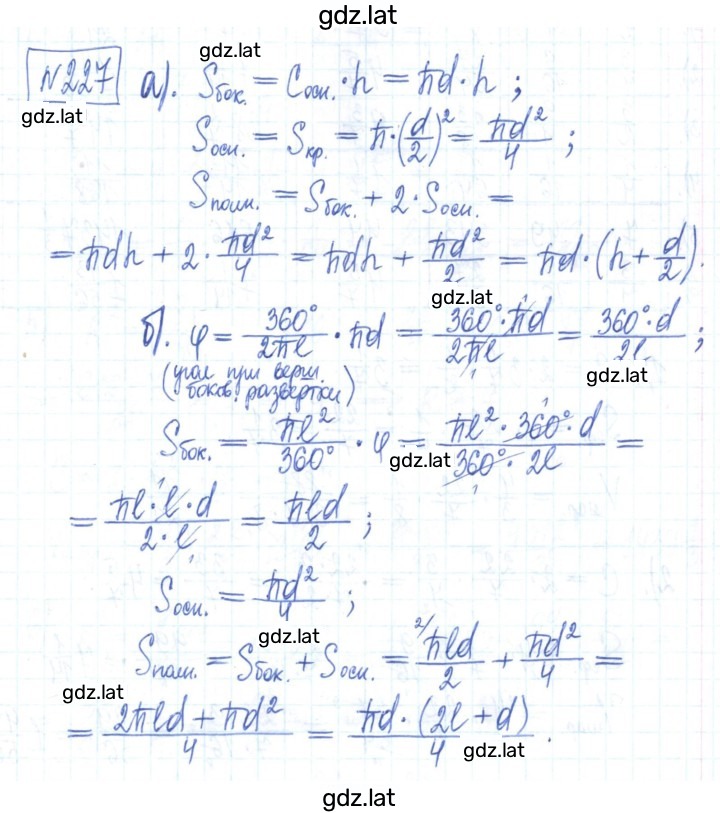 gdz.lat
gdz.lat
№227 а). Sбок. = Cосн. · h = πd · h ;
gdz.lat
Sосн. = Sкр. = π · (d/2)² = πd²/4 ;
Sполн. = Sбок. + 2 · Sосн. =
= πdh + 2 · πd²/4 = πdh + πd²/2 = πd · (h + d/2).
gdz.lat
б). φ = 360°/2πl · πd = 360° · πd/2πl = 360° · d/2l ;
(угол при верш. боков. развертки)
gdz.lat
Sбок. = πl²/360° · φ = πl² · 360° · d/360° · 2l =
gdz.lat
= πl · l · d/2 · l = πld/2 ;
Sосн. = πd²/4 ;
gdz.lat
Sполн. = Sбок. + Sосн. = πld/2 + πd²/4 =
gdz.lat
= 2πld + πd²/4 = πd · (2l + d)/4 .
gdz.lat
gdz.lat